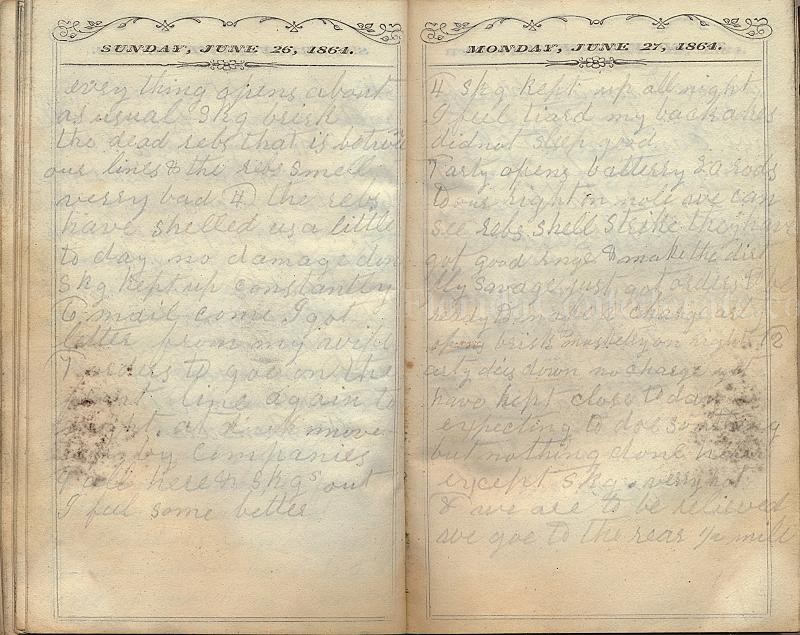 SUNDAY, JUNE 26, 1864.
every thing opens about
as usual Skg brisk
the dead rebs that is betwee
our lines & the rebs smell
verry bad 4 the rebs
have shelled us a little
to day no damage don
Skg kept up constantly
6 mail come I got
letter from my wife
7 orders to goe on the
front line again to
night. at dark move
by companies
all here & Skgs out
I feel some better
MONDAY, JUNE 27, 1864.
4 Skg kept up all night
I feel tiard my back akes
did not sleep good
7 arty opens batterry 20 rods
to our right on noll we can
see rebs shell strike they have
got good rnge & make the dirt
fly savage just got orders to be
redy to make a charge arty
opens brisk mostelly on right 12
arty dies down no charge yet
have kept close to day
expecting to doe something
but nothing done
except Skg verry hot
& we are to be relieved
we goe to the rear 1/2 mile